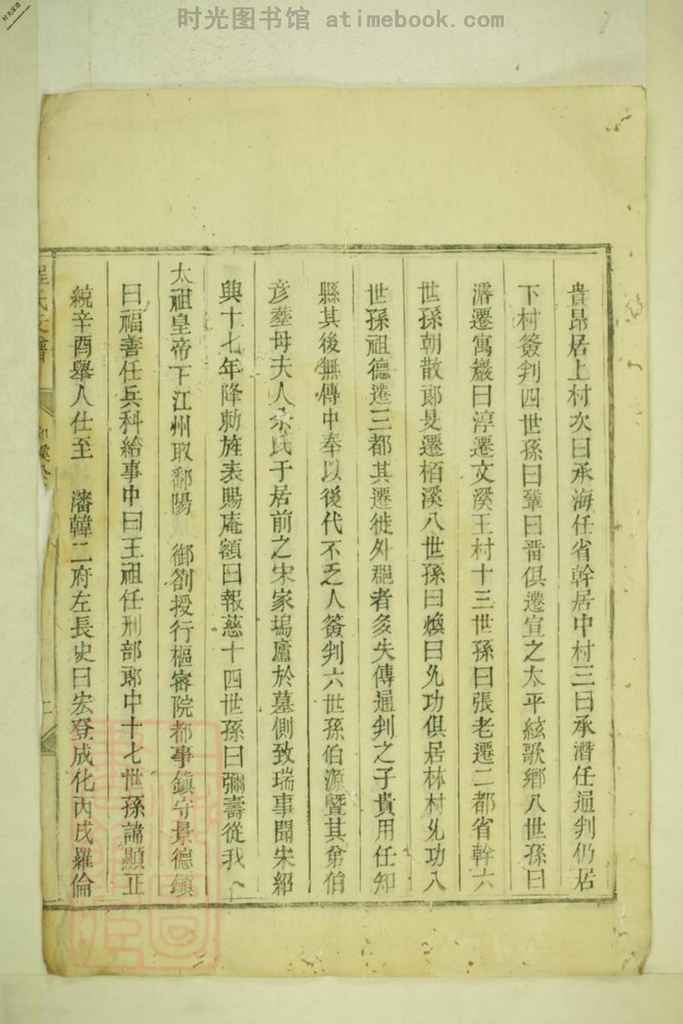 时光图书馆 atimebook.com
貴昂居上村次曰承海任省幹居中村三曰承潛任通判仍居
下村簽判四世孫曰鞏曰晋俱遷宣之太平絃歌鄉八世孫曰
濬遷寓巖曰淳遷文溪王村十三世孫曰張老遷二都省幹六
世孫朝散郎旻遷栢溪八世孫曰煥曰允功俱居林村允功八
世孫祖德遷三都其遷徙外郡者多失傳通判之子貴用任知
縣其後無傳中奉以後代不乏人簽判六世孫伯源暨其弟伯
彦塟母夫人余氏于居前之宋家塢廬於墓側致瑞事聞宋紹
興十七年降勅旌表賜庵額曰報慈十四世孫曰彌壽從我
太祖皇帝下江州取鄱陽 御劄授行樞密院都事鎮守景德鎮
曰福善任兵科給事中曰王祖任刑部郎中十七世孫諱顯正
統辛酉舉人仕至 瀋韓二府左長史曰宏登成化丙戌羅倫
程氏文譜